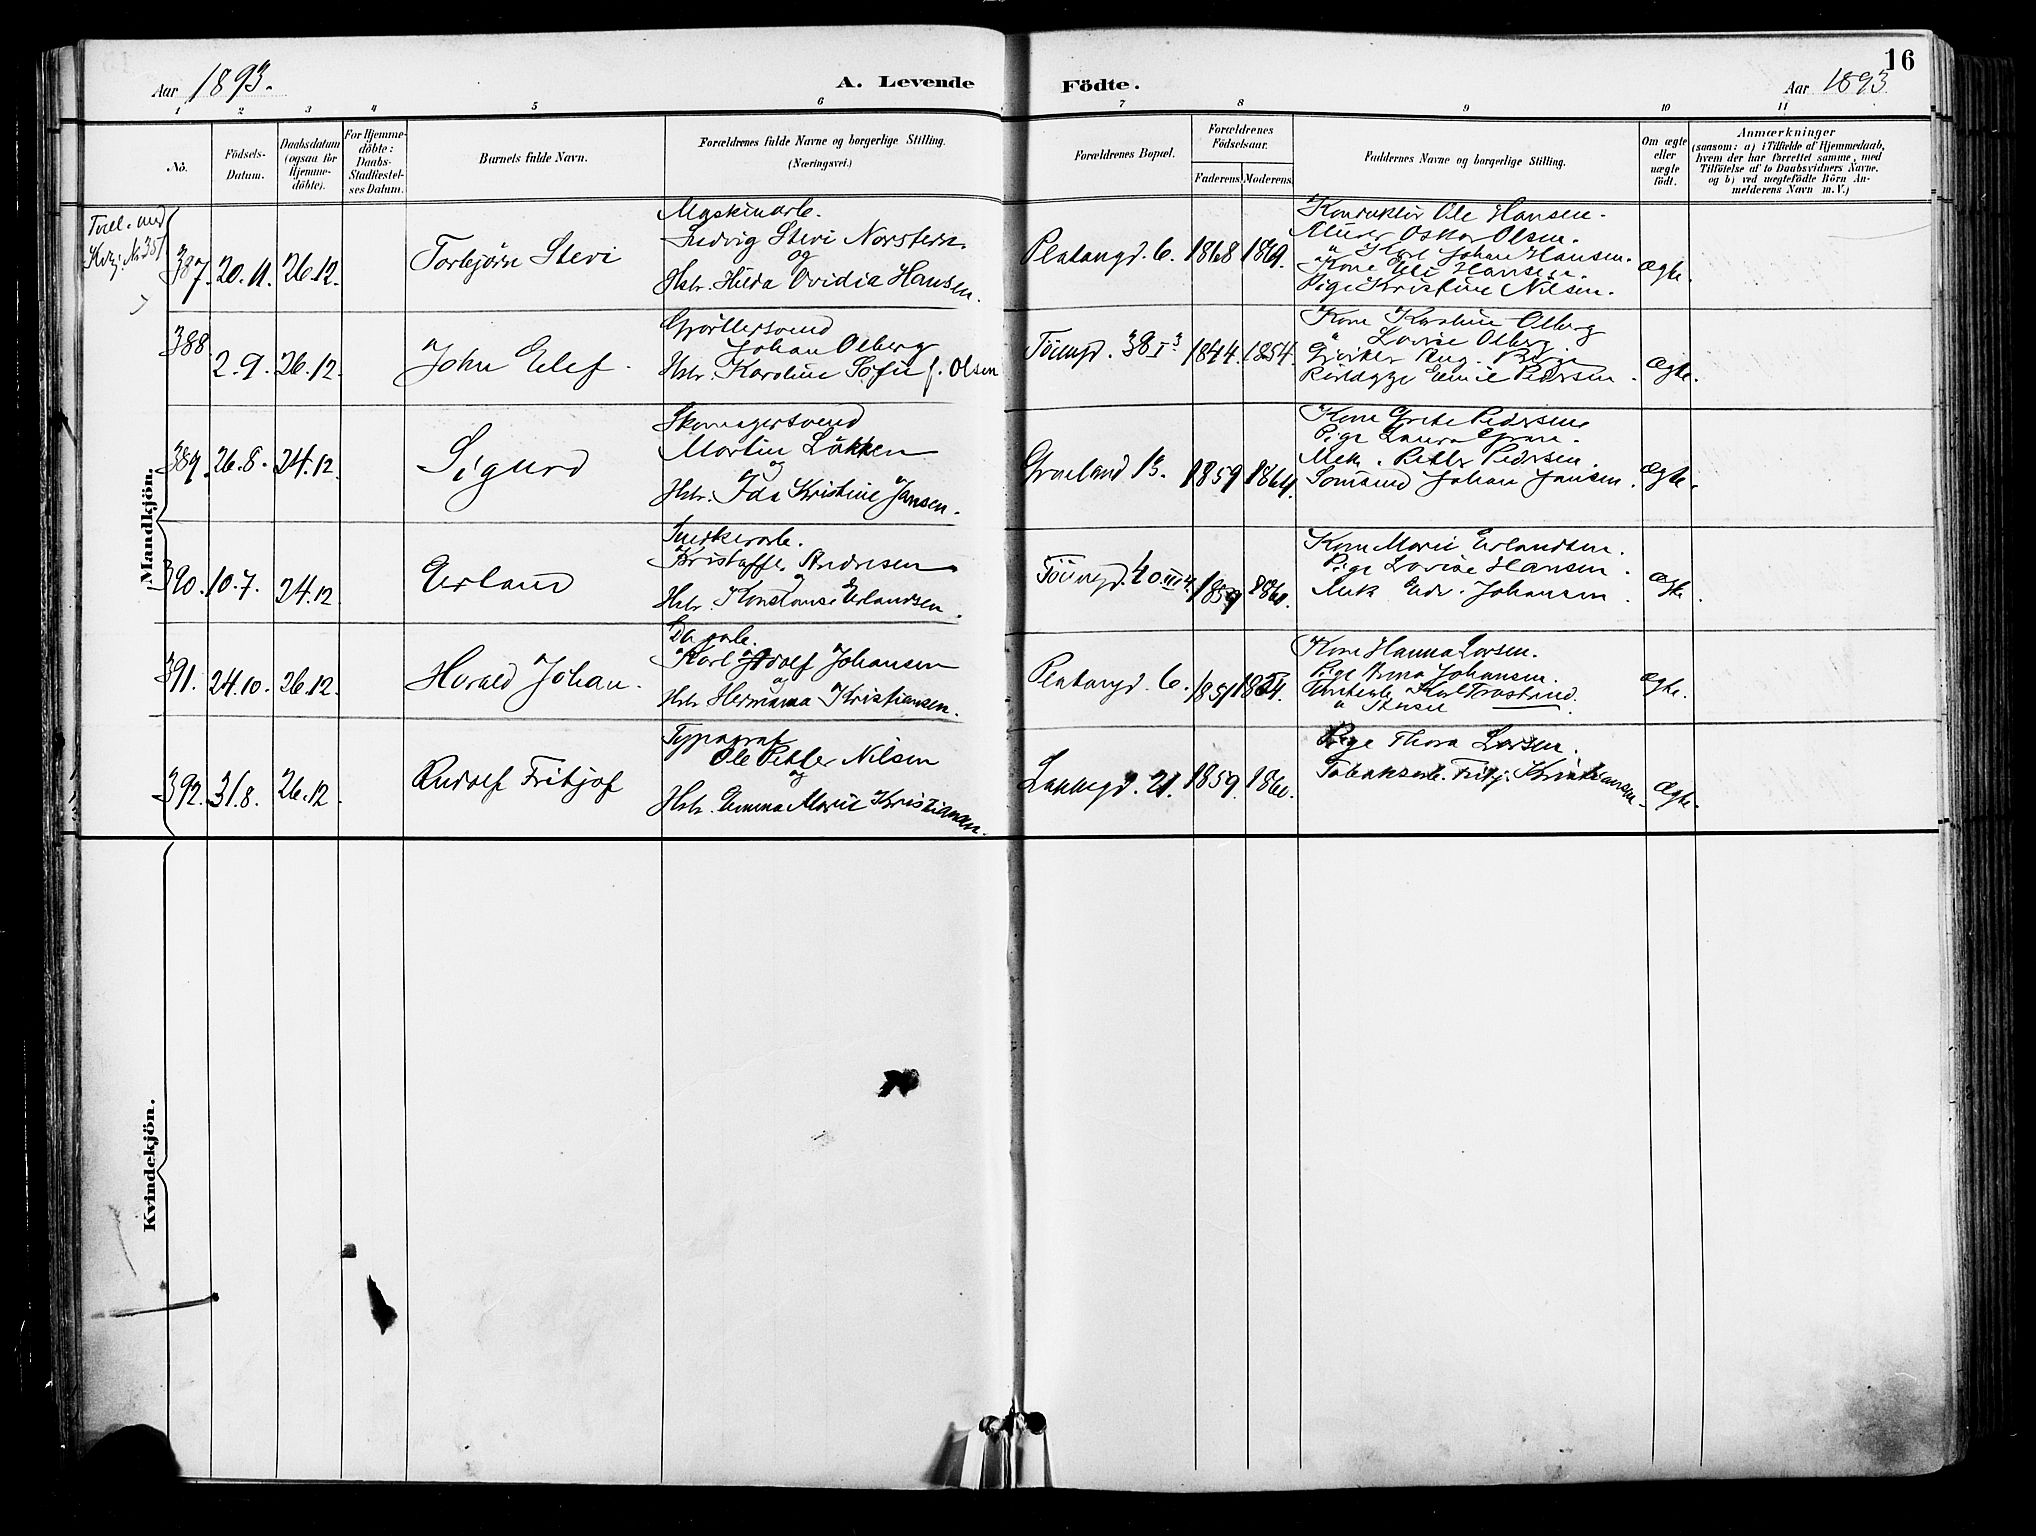 16
Aar 1893.
A. Levende Födte.
Aar 1893
1 2 3 4 5 6 7 8 9 10 11
Nö.
Födsels-
Datum.
Daabsdatum
(ogsaa for
Hjemme-
döbte).
For Hjemme-
döbte:
Daabs-
Stadfæstel-
ses Datum.
Barnets fulde Navn.
Forældrenes fulde Navne og borgerlige Stilling.
(Næringsvei.)
Forældrenes Bopæl.
Forældrenes
Födselsaar.
Faderens. Moderens.
Faddernes Navne og borgerlige Stilling.
Om ægte
eller
uægte
födt.
Anmærkninger
(saasom: a) i Tilfælde af Hjemmedaab,
hvem der har forrettet samme, med
Tilföielse af to Daabsvidners Navne.
og b) ved uægtefödte Börn An-
melderens Navn m. V.)
Mandkjön.
Tvil. med
Kvkj. No 351
387. 20.11. 26.12.
Torbjørn Stevi
Maskinarb.
Ludvig Stevi Norstern
og
Hstr. Hilda Ovidia Hansen.
Platangd. 6. 1868 1869.
Konduktör Ole Hansen.
Murer Oskar Olsen.
" Karl Johan Hansen.
Kone Eli Hansen.
Pige Kristine Nilsen.
Ægte.
388 2.9. 26.12.
John Elef.
Gjörtlersvend
Johan Olberg
Hstr. Karoline Sofie f. Olsen
Töiengd. 38 I 3 1844. 1854.
Kone Karoline Olberg
" Lovise Olberg
Aug. Børje
Emil Pedersen.
Ægte.
389. 26.8. 24.12
Sigurd
Skomagersvend
Martin Løkken
og
Hstr. Ida Kristine Jansen.
Grønland 13. 1859 1864.
Kone Grete Pedersen
Pige Laura Gran.
Mek. Petter Pedersen.
Sömand Johan Jansen.
Ægte.
390. 10.7. 24.12
Erland
Snedkerarb.
Kristoffer Andresen
og
Hstr. Konstanse Erlandsen.
Töiengd. 40 III 4. 1859 1860.
Kone Marie Erlandsen.
Pige Lovise Hansen.
Mek Edv. Johansen.
Ægte.
391. 24.10. 26.12.
Harald Johan.
Dagarb.
Karl Adolf Johansen
og
Hstr Hermana Kristiansen.
Platangd. 6. 1851 1854.
Kone Hanna Larsen.
Pige Anna Johansen.
Karl Trostrud.
"
Ægte.
392. 31.8. 26.12.
Rudolf Fritjof
Typograf
Ole Petter Nilsen
og
Hstr. Emma Marie Kristiansen.
Lakkegd. 21. 1859. 1860.
Pige Thora Larsen.
Tobaksarb. Fritj. Kristiansen.
Ægte.
Kvindekjön.